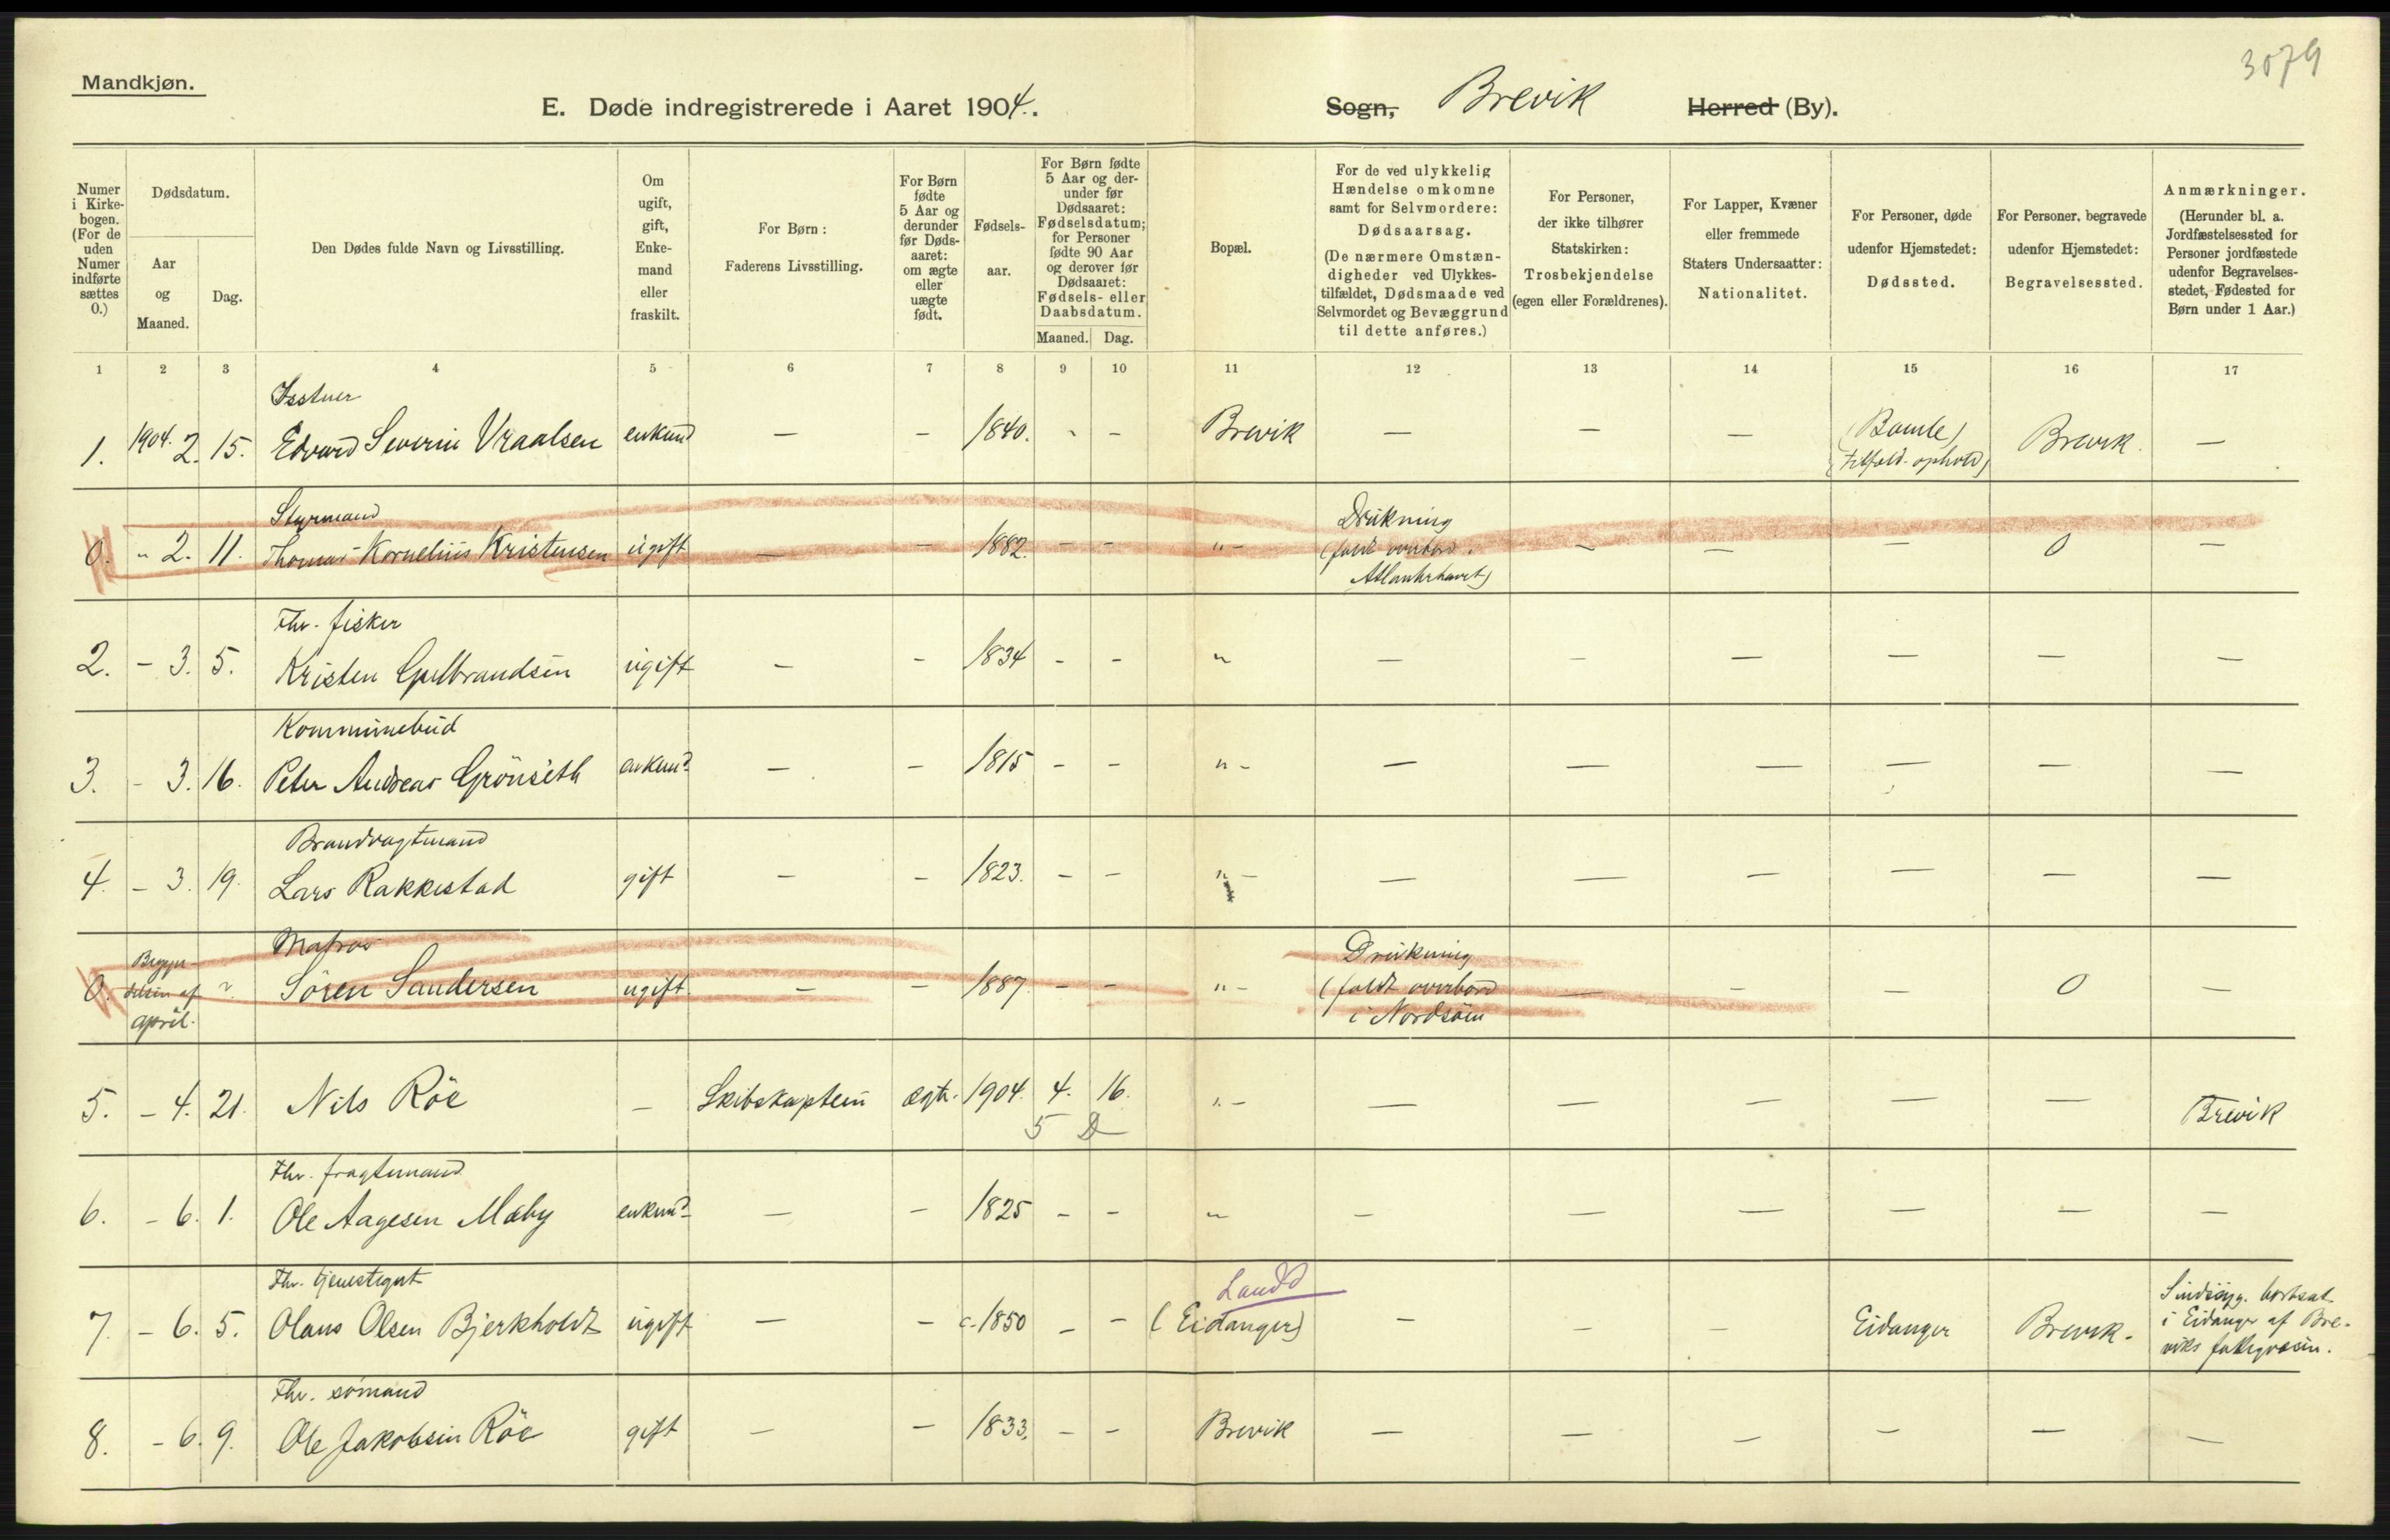 3079
Mandkjøn.
E. Døde indregistrerede i Aaret 1904.
Sogn, Brevik Herred (By).
Numer i Kirke-bogen. (For de uden Numer indførte sættes 0.)
Dødsdatum.
Aar og Maaned.
Dag.
Den Dødes fulde Navn og Livsstilling.
Om ugift, gift, Enke-mand eller fraskilt.
For Børn: Faderens Livsstilling.
For Børn fødte 5 Aar og derunder før Døds-aaret: om ægte eller uægte født.
Fødsels-aar.
For Børn fødte 5 Aar og der-under før Dødsaaret: Fødselsdatum; for Personer fødte 90 Aar og derover før Dødsaaret: Fødsels- eller Daabsdatum.
Maaned. Dag.
Bopæl.
For de ved ulykkelig Hændelse omkomne samt for Selvmordere: Dødsaarsag.
(De nærmere Omstæn-digheder ved Ulykkes-tilfældet, Dødsmaade ved Selvmordet og Bevæggrund til dette anføres.)
For Personer, der ikke tilhører Statskirken: Trosbekjendelse (egen eller Forældrenes).
For Lapper, Kvæner eller fremmede Staters Undersaatter: Nationalitet.
For Personer, døde udenfor Hjemstedet: Dødssted.
For Personer, begravede udenfor Hjemstedet: Begravelsessted.
Anmærkninger.
(Herunder bl. a. Jordfæstelsessted for Personer jordfæstede udenfor Begravelses-stedet, Fødested for Børn under 1 Aar.)
1 2 3 4 5 6 7 8 9 10 11 12 13 14 15 16 17
1. 1904. 2. 15. Edvard Severin Vraalsen enkemd — — 1840. - - Brevik — — — (Bamle) Brevik. —
(tilfæld. ophold)
Styrmand
0. " 2. 11. Thomas Kornelius Kristensen ugift — — 1882. — — " - Drukning — — — 0 —
(faldt overbord.
Atlanterhavet)
Fhv. fisker
2. - 3. 5. Kristen Gulbrandsen ugift — - 1834 - - " — — — — — —
Kommunebud
3. - 3. 16. Peter Andreas Grönseth enkemd — — 1815 - - " - — — — — — —
Brandvagtmand
4. - 3. 19. Lars Rakkestad gift — — 1823. - - " - — — — — — —
Matros
0. Begyn-delsen af april. ? Sören Sandersen ugift — — 1887. - - " - Drukning — - — 0 —
(faldt overbord
i Nordsöen
5. - 4. 21. Nils Röe — Skibskaptein ægte. 1904. 4. 16. " - — — — — — Brevik
5 D
Fhv. fragtemand
6. - 6. 1. Ole Aagesen Mæby enkemd — — 1825 - - " — — — — — —
Fhv. tjenestegut
7. - 6. 5. Olaus Olsen Bjerkholdt ugift — - c. 1850 - - (Eidanger) — — — Eidanger Brevik.
Landd
Sindssyg. bortsat
i Eidanger af Bre-
viks fattigvæsen.
Fhv. sömand
8. - 6. 9. Ole Jakobsen Röe gift — — 1833. - - Brevik — — — — — —